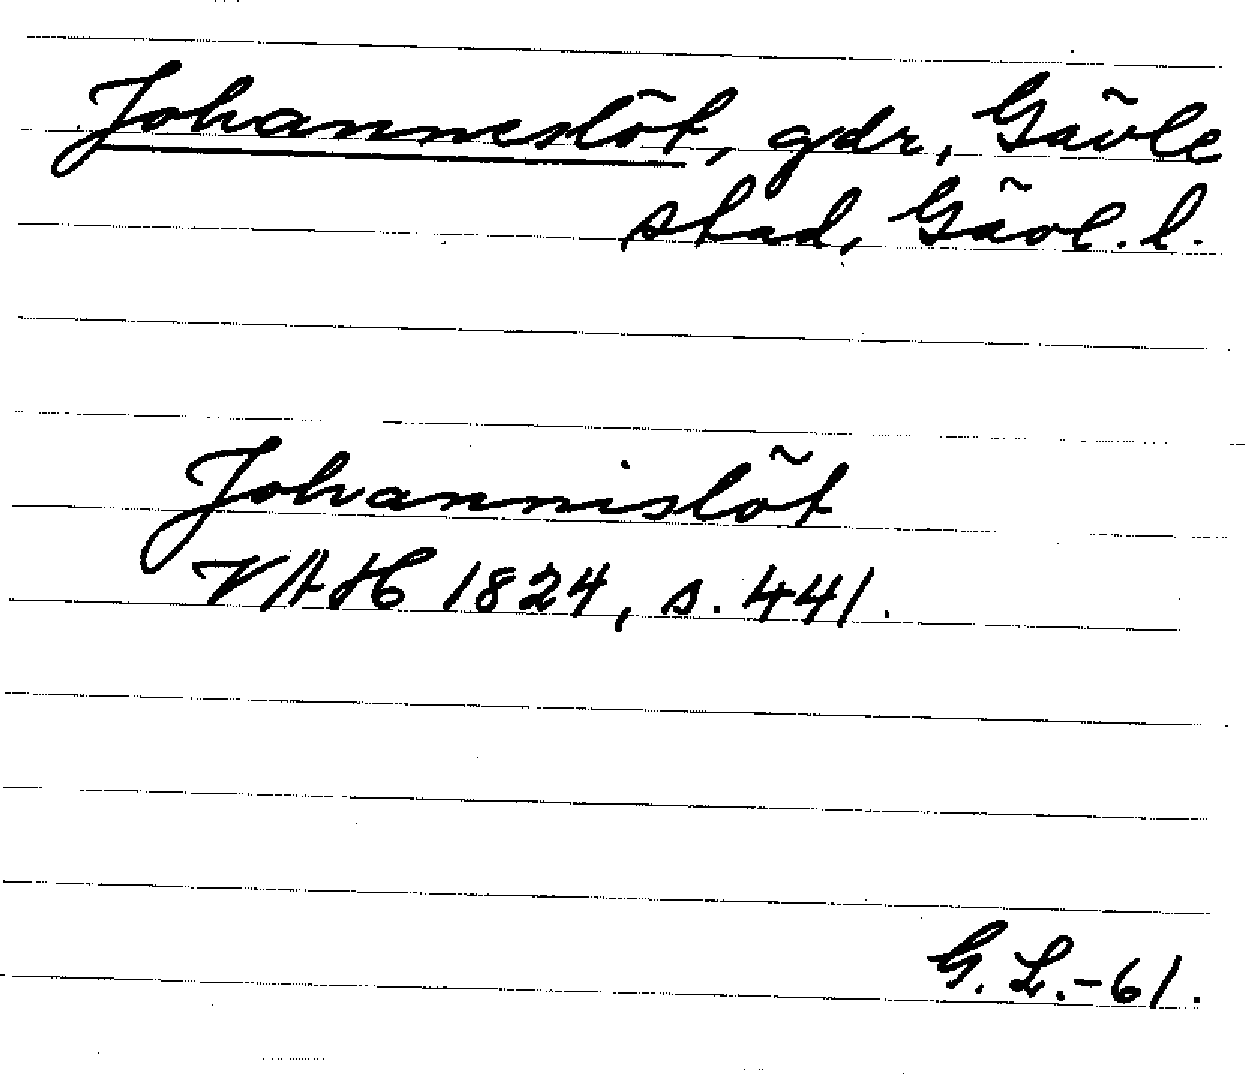 Johanneslöt, gdr, Gävle
stad, Gävl. l.
Johannislöt
VAH 1824, s. 441.
G. L.-61.